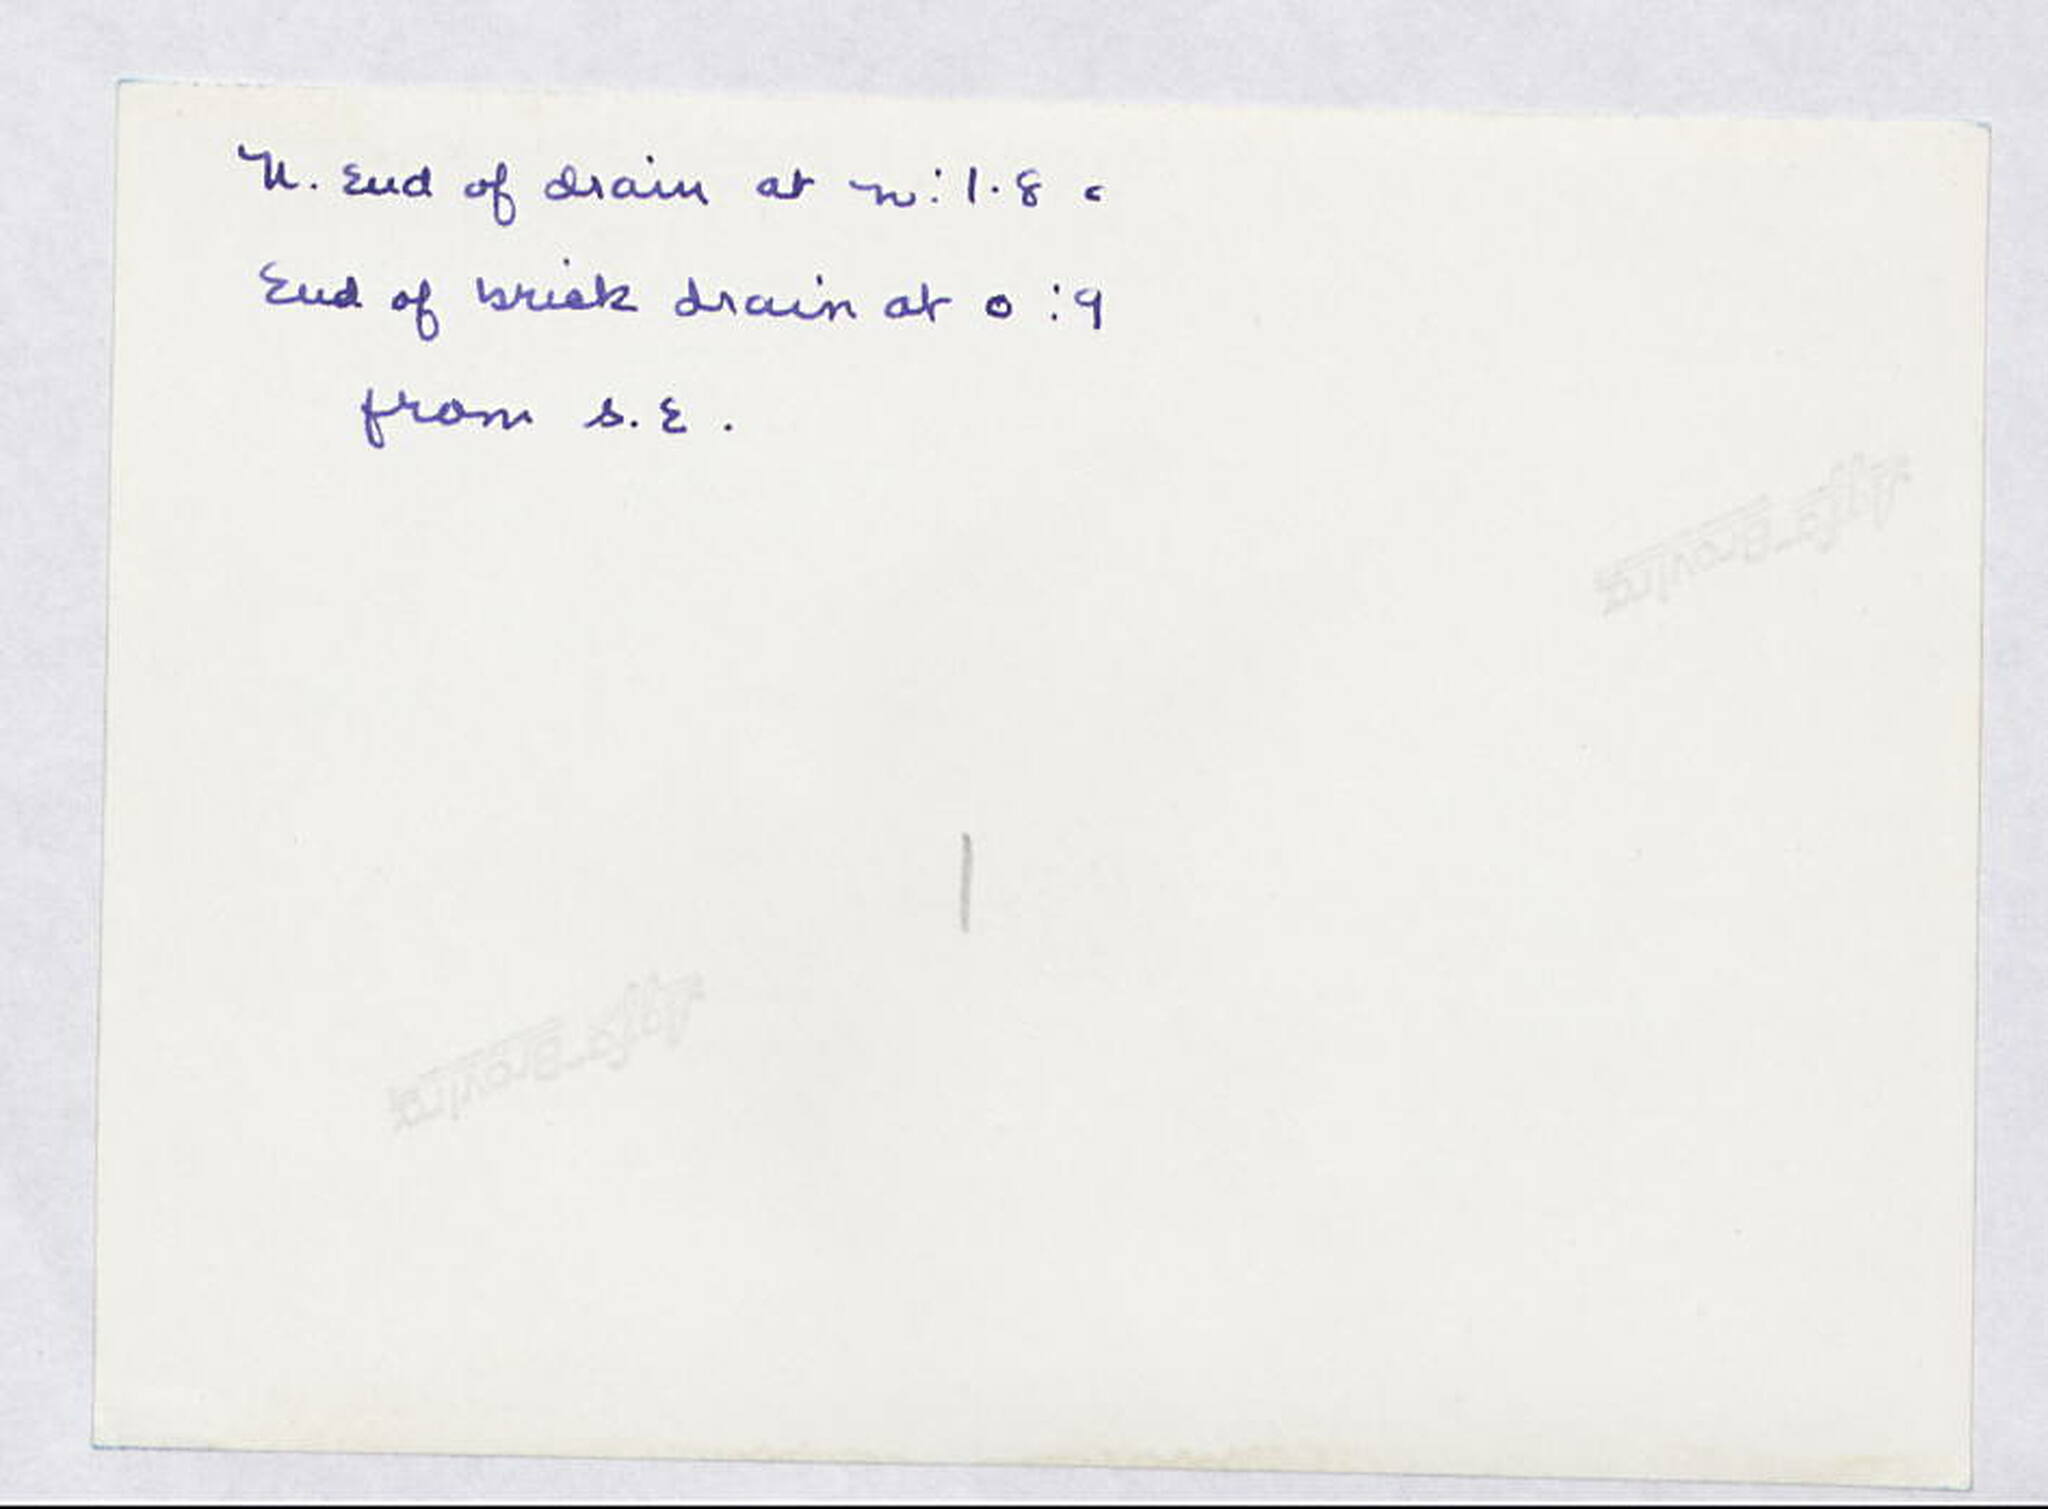 N. End of drain at n:1.8 c
End of brick drain at o:9
from S.E.
Agfa-Brovira
Agfa-Brovira